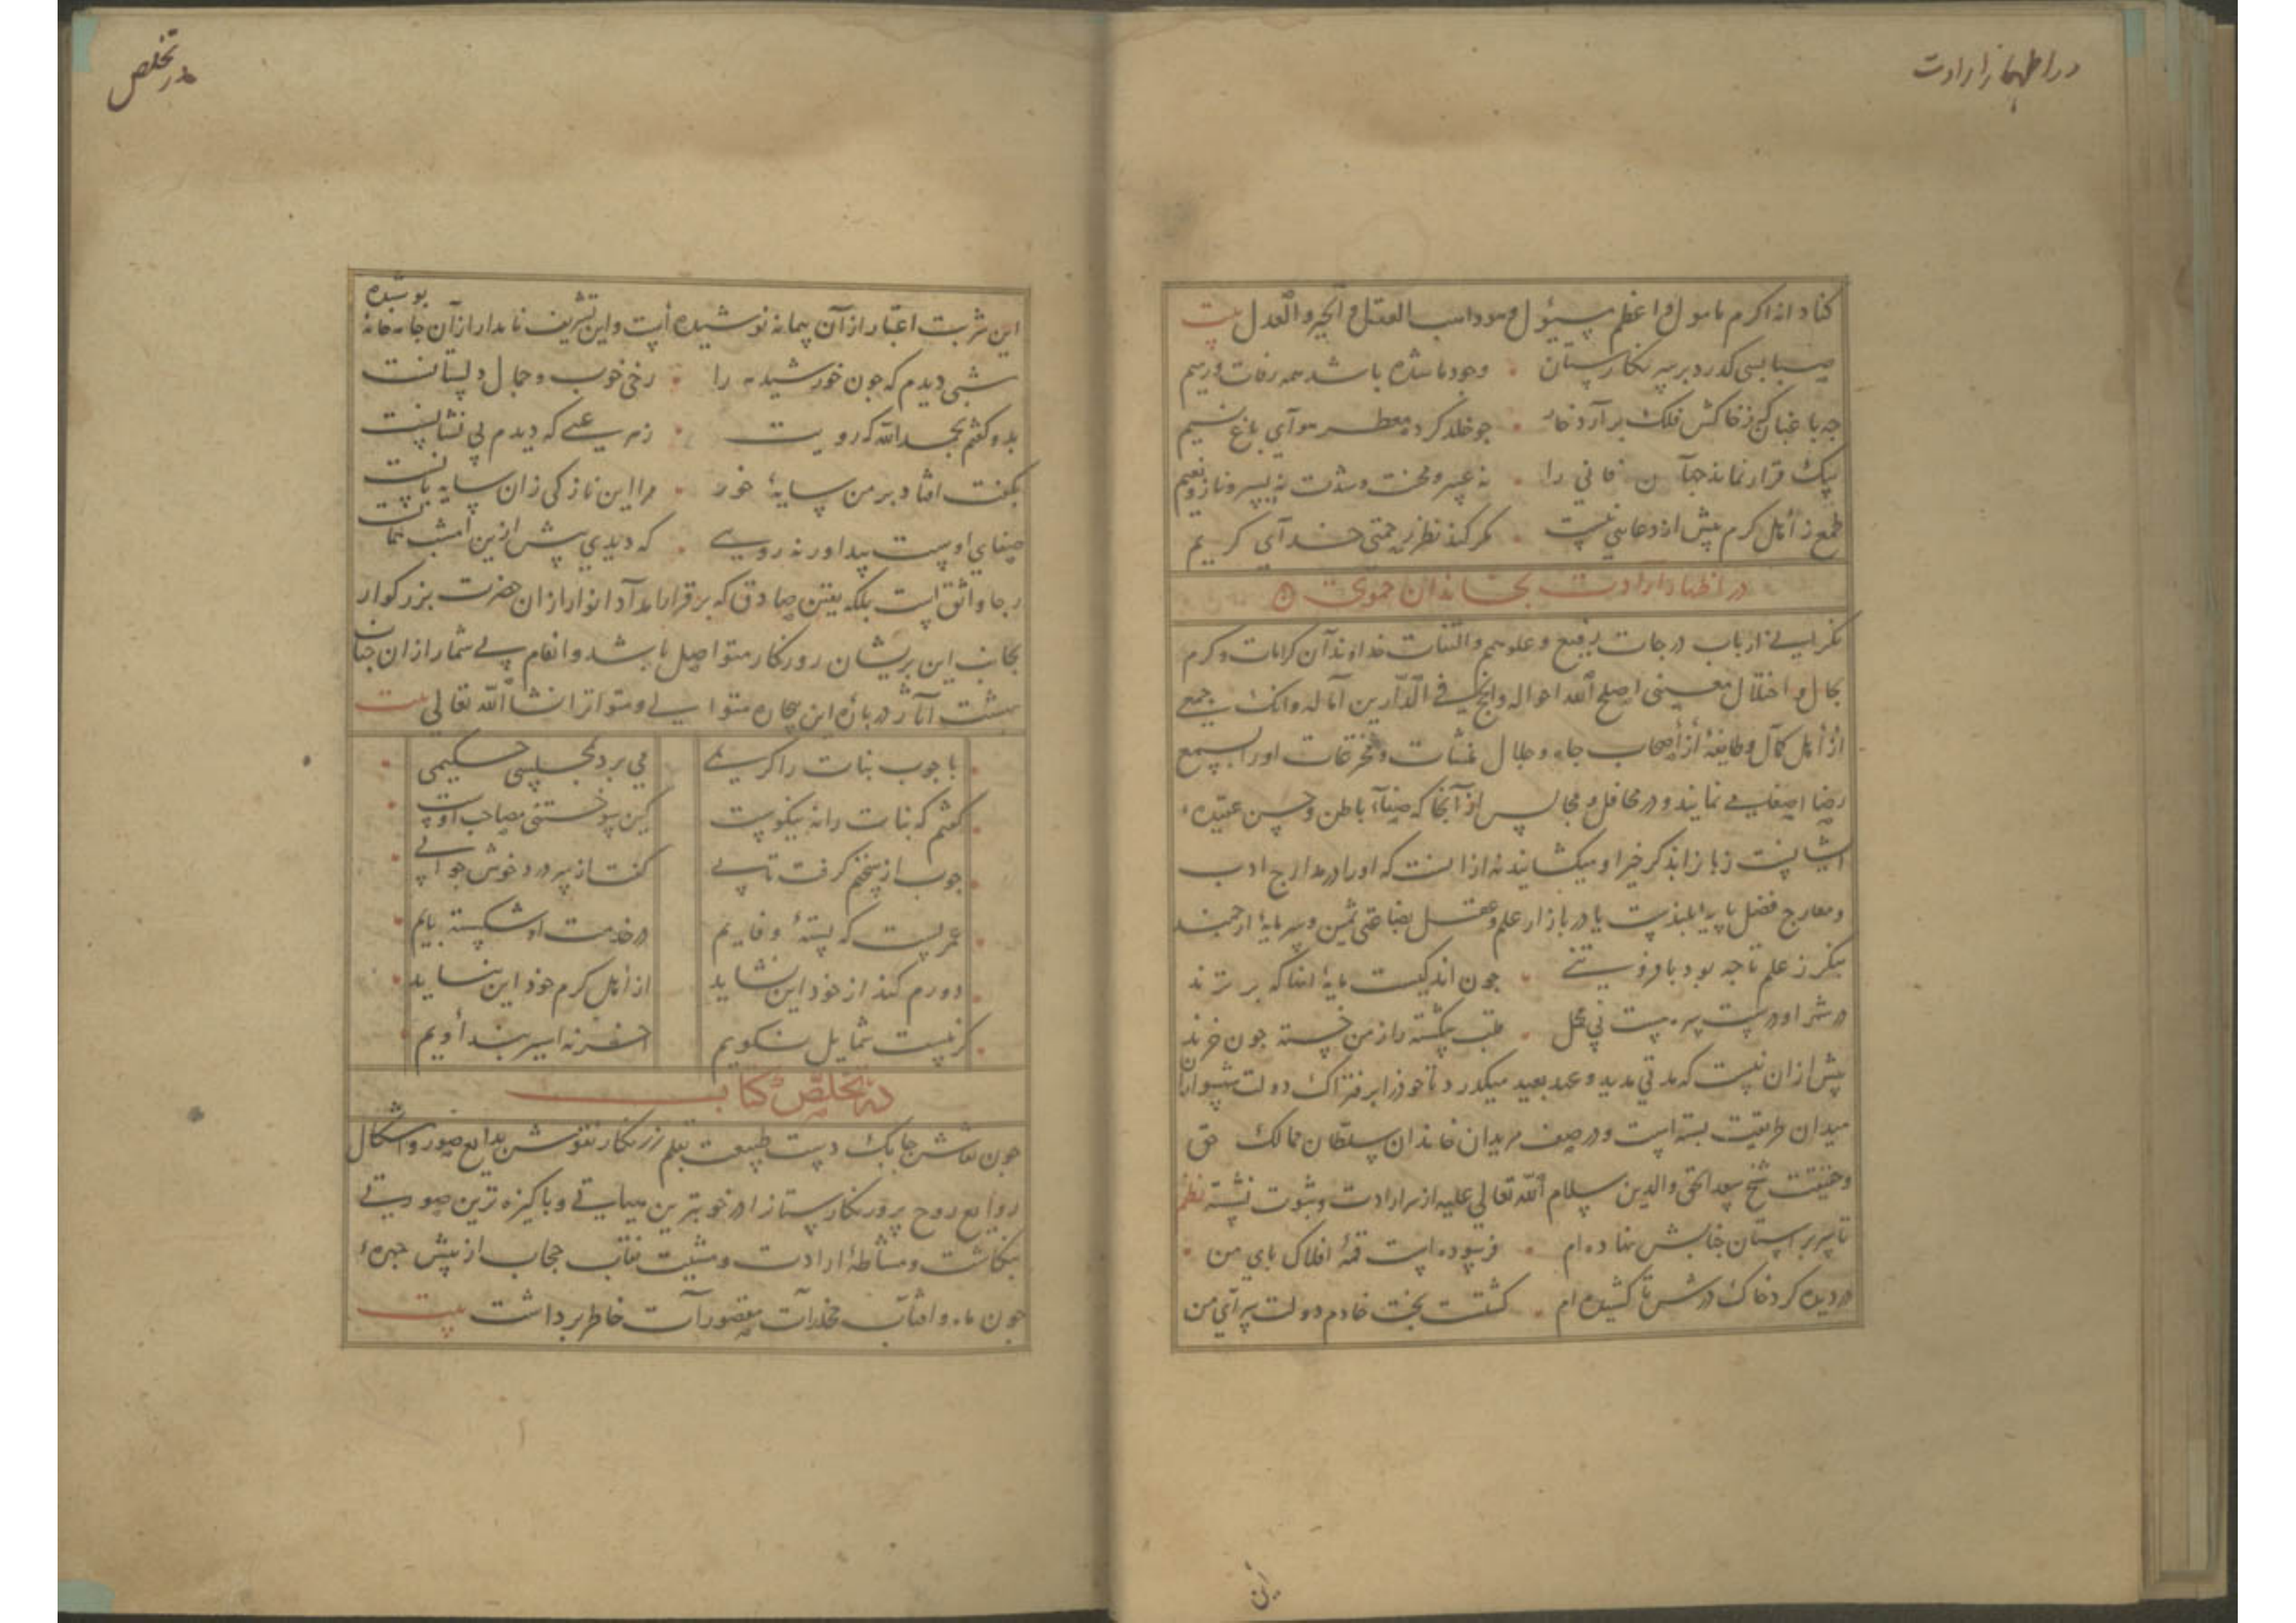 در اظهار ارادت
کناد انه اکرم مامول و اعظم مسئول و هو واهب العقل و الخیر و العدل بیت
صبا بسی گذرد بر سر نگارستان وجود ما شده باشد همه رفات و رمیم
چه باغبان کز خاکش فلک برآرد خار چو خلد کرده معطر هوای باغ نسیم
بیک قرار نماند جهان فانی را نه عسر و محنت و شدت نه یسر و ناز و نعیم
طمع ز اهل کرم بیش از دعایی نیست مگر کند نظر رحمتی خدای کریم
در اظهار ارادت بخاندان حموی
نکر ایی از باب درجات رفیع و علو همم و التفات خداوند آن کرامات و کرم
بحال و اختلال معینی اصلح الله احواله و انجح فی الدارین آماله و انک جمعی
از اهل کمال و طایفه از اصحاب جاه و جلال منشآت و مخترعات او را بسمع
رضا اصغا می نمایند و در محافل و مجالس از آنجا که صفای باطن و حسن عقیده
ایشانست زبان بذکر خیر او میگشایند نه از آنست که او را در مدارج ادب
و معارج فضل پایه بلندست یا در بازار علم و عقل بضاعتی ثمین و سرمایه ارجمند
بنگر ز علم تا چه بود با فروستی چون اندکیست مایه آنها که برترند
در شهر او درست سره نیست بی محل قلب شکسته را ز من خسته چون خرند
بیش از آن نیست که مدتی مدید و عهد بعید میگذرد تا خود را بر فتراک دولت پیشوای
میدان طریقت بسته است و در صف مریدان خاندان سلطان ممالک حق
و حقیقت شیخ سعد الحق و الدین سلام الله تعالی علیه از سر ارادت و ثبوت نشسته نظم
تا سر بر آستان جنابش نهاده ام فرسوده است قمه افلاک پای من
در دیده گرد خاک درش تا کشیده ام گشتست بخت خادم دولت سرای من
این
در تخلص
این شربت اعتبار از آن پیمانه نوشیده است و این تشریف نامدار از آن جامه خانه پوشیده
شبی دیدم که چون خورشید مه را رخی خوب و جمال دلستانست
بدو گفتم بحمد الله که رویت ز هر عیبی که دیدم بی نشانست
بگفت افتاد بر من سایه خور مرا این نازکی زان سایه بانست
صفای اوست پیدا ور نه رویی که دیدی پیش ازین امشب همانست
رجا واثق است بلکه یقین صادق که بر قرار امداد انوار از آن حضرت بزرگوار
بجانب این پریشان روزگار متواصل باشد و انعام بی شمار از آن جناب
بهشت آثار در باره این بیچاره متوالی و متواتر انشا الله تعالی بیت
با چوب نبات را کریمی می برد بمجلس حکیمی
گفتم که نبات را نه نیکوست کین سوختنی مصاحب اوست
چوب از سخنم گرفت تابی گفت از سر درد خوش جوابی
عمریست که بسته وفایم در خدمت او شکسته پایم
دورم کند از خود این نشاید از اهل کرم خود این نیاید
گر نیست شمایل نکویم آخر نه اسیر بند اویم
در تخلص کتاب
چون نقاش چابک دست طبیعت بقلم زرنگار نقوش بدایع صور و اشکال
روایع روح پرور نگارستان را در خوبترین هیأتی و پاکیزه ترین صورتی
بنگاشت و مشاطه ارادت و مشیت نقاب حجاب از پیش چهره
چون ماه و آفتاب مخدرات مقصورات خاطر برداشت بیت